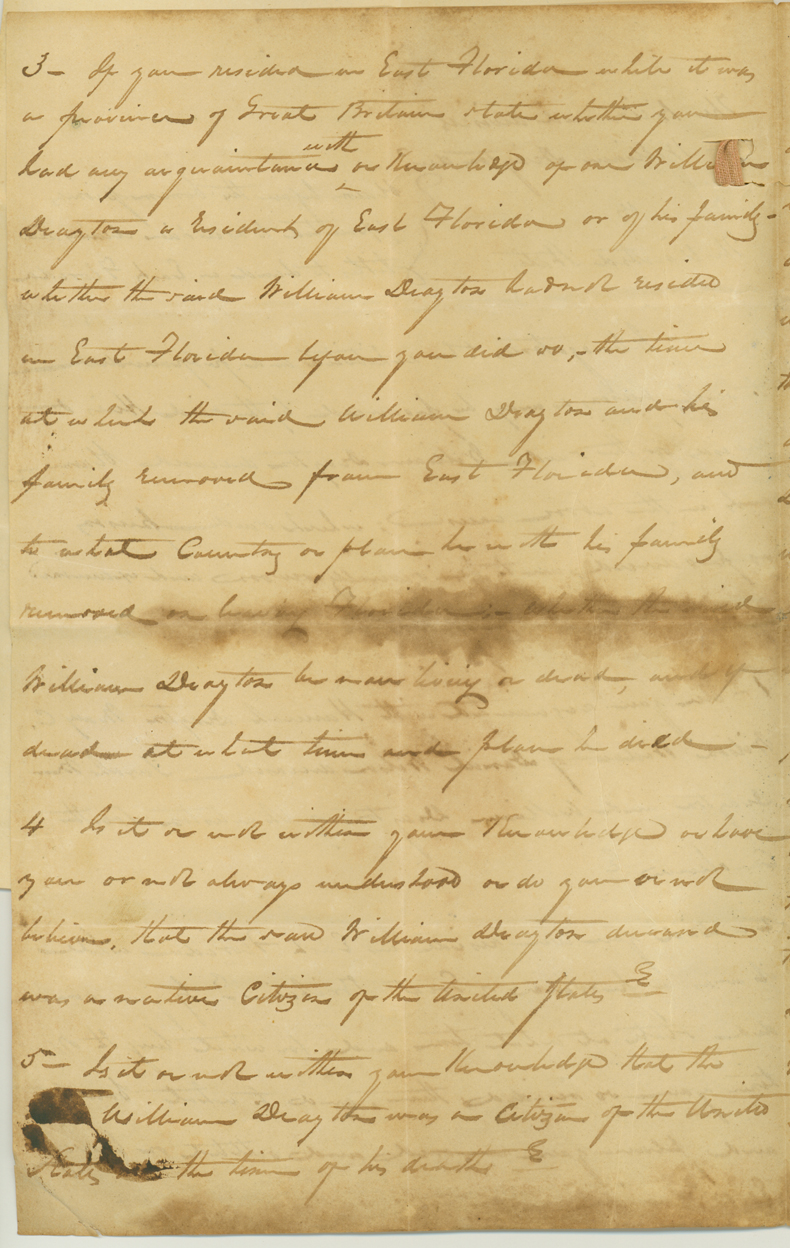 3 - If you resided in East Florida while it was
a province of Great Britain state whether you
had any acquaintance with or Knowledge of one William
Drayton a Resident of East Florida or of his family -
whether the said William Drayton had not resided
in East Florida before you did so, - the time
at which the said William Drayton and his
family removed from East Florida, and
to what Country or place he with his family
removed on leaving Florida - whether the said
William Drayton be now living or dead, and if
dead at what time and place he died -
4 Is it or not within your Knowledge or have
you or not always understood or do you or not
believe, that the said William Drayton deceased
was a native Citizen of the United States
5 - Is it or not within your Knowledge that the
William Drayton was a Citizen of the United
States at the time of his death